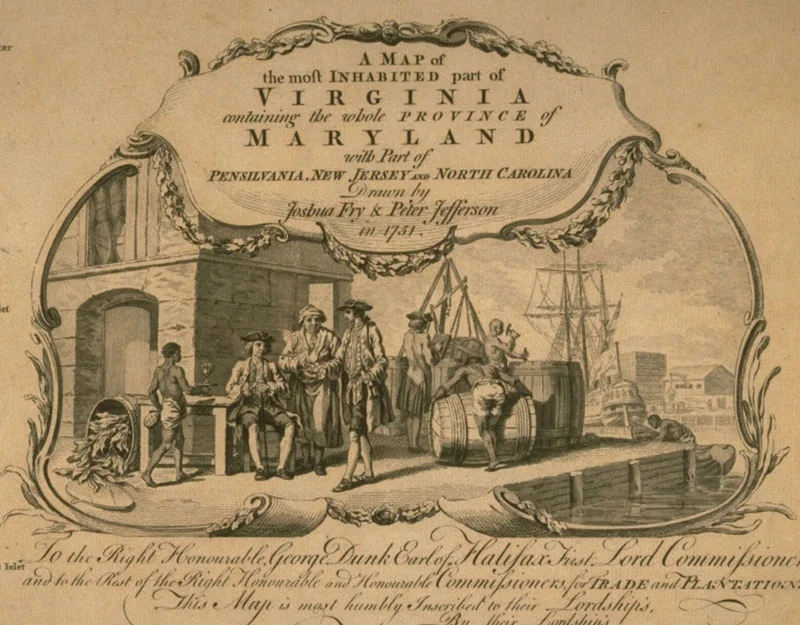 A MAP of
the moſt INHABITED part of
VIRGINIA
containing the whole PROVINCE of
MARYLAND
with Part of
PENSILVANIA, NEW JERSEY AND NORTH CAROLINA
Drawn by
Joshua Fry & Peter Jefferson
in 1751.
To the Right Honourable, George Dunk Earl of Halifax First Lord Commiſsioner
and to the Rest of the Right Honourable and Honourable Commiſsioners, for TRADE and PLANTATIONS
This Map is most humbly Inscribed to their Lordship's,
By their Lordship's
Inlet